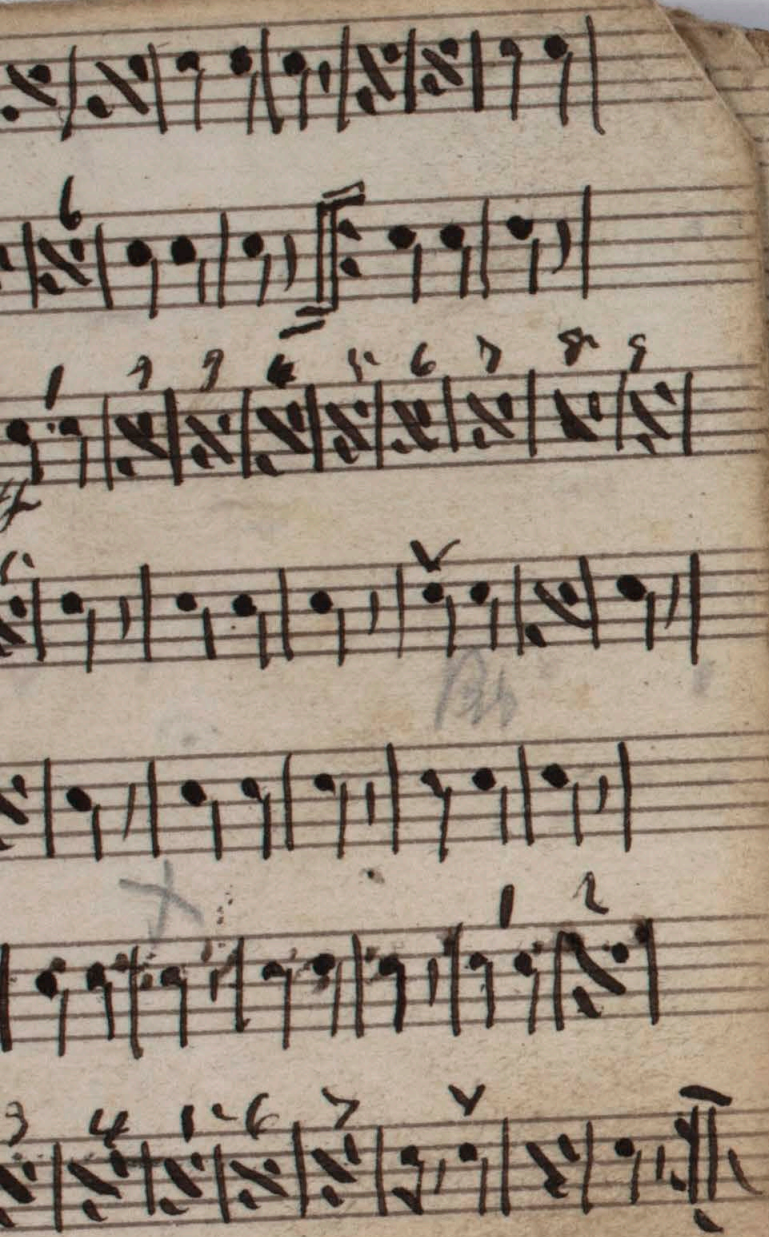 6
1 2 3 4 5 6 7 8 9
Bb
1 2
3 4 5 6 7